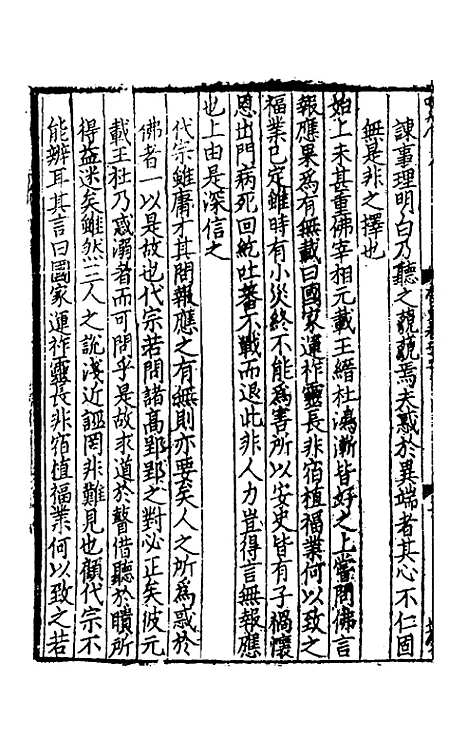 諫事理明白乃聽之藐藐焉夫惑於異端者其心不仁固
無是非之擇也
始上未甚重佛宰相元載王縉杜鴻漸皆好之上嘗問佛言
報應果為有無載曰國家運祚靈長非宿植福業何以致之
福業已定雖時有小災終不能為害所以安史皆有子禍懷
恩出門病死回紇吐蕃不戰而退此非人力豈得言無報應
也上由是深信之
代宗雖庸才其問報應之有無則亦要矣人之所為惑於
佛者一以是故也代宗若問諸高郢郢之對必正矣彼元
載王杜乃惑溺者而可問乎是故求道於瞽借聽於聵所
得益迷矣雖然三人之說淺近誣罔非難見也顧代宗不
能辨耳其言曰國家運祚靈長非宿植福業何以致之若